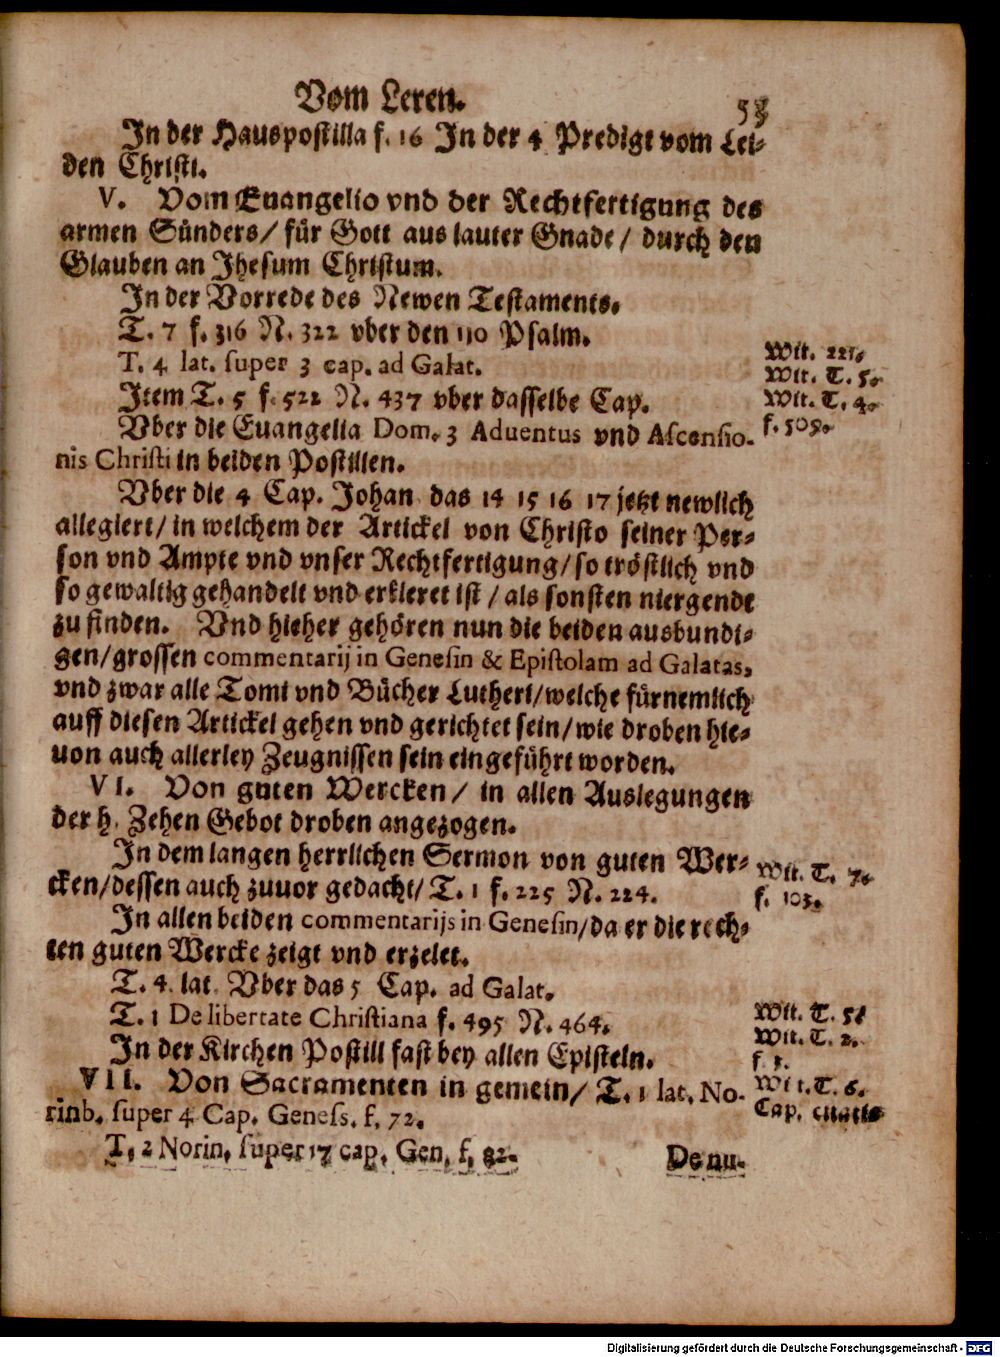 Vom Leren.
In der Hauspostilla f. 16 In der 4 Predigt vom Lei-
den Christi.
V. Vom Euangelio vnd der Rechtfertigung des
armen Sünders/ für Gott aus lauter Gnade/ durch den
Glauben an Jhesum Christum.
In der Vorrede des Newen Testaments.
T. 7 f. 316 N. 322 vber den 110 Psalm.
Wit. 221.
T. 4 lat. super 3 cap. ad Galat.
Wit. T. 5.
Item T. 5 f. 522 N. 437 vber dasselbe Cap.
Wit. T. 4.
f. 505.
Vber die Euangelia Dom. 3 Aduentus vnd Ascensio-
nis Christi in beiden Postillen.
Vber die 4 Cap. Johan das 14 15 16 17 jetzt newlich
allegiert/ in welchem der Artickel von Christo seiner Per-
son vnd Ampte vnd vnser Rechtfertigung/ so tröstlich vnd
so gewaltig gehandelt vnd erkleret ist / als sonsten niergendt
zu finden. Vnd hieher gehören nun die beiden ausbundi-
gen/grossen commentarij in Genesin & Epistolam ad Galatas,
vnd zwar alle Tomi vnd Bücher Lutheri/welche fürnemlich
auff diesen Artickel gehen vnd gerichtet sein/ wie droben hie-
uon auch allerley Zeugnissen sein eingeführt worden.
VI. Von guten Wercken/ in allen Auslegungen
der h. Zehen Gebot droben angezogen.
In dem langen herrlichen Sermon von guten Wer-
Wit. T. 7.
cken/dessen auch zuuor gedacht/ T. 1 f. 225 N. 224.
f. 103.
In allen beiden commentarijs in Genesin/da er die rech-
ten guten Wercke zeigt vnd erzelet.
T. 4. lat. Vber das 5 Cap. ad Galat.
T. 1 De libertate Christiana f. 495 N. 464.
Wit. T. 5
Wit. T. 2.
In der Kirchen Postill fast bey allen Episteln.
VII. Von Sacramenten in gemein/ T. 1 lat. No-
Wit. T. 6.
rinb. super 4 Cap. Genes. f. 72.
Cap. citatis
T. 2 Norin. super 17 cap. Gen. f. 82.
De nu.
Digitalisierung gefördert durch die Deutsche Forschungsgemeinschaft - DFG